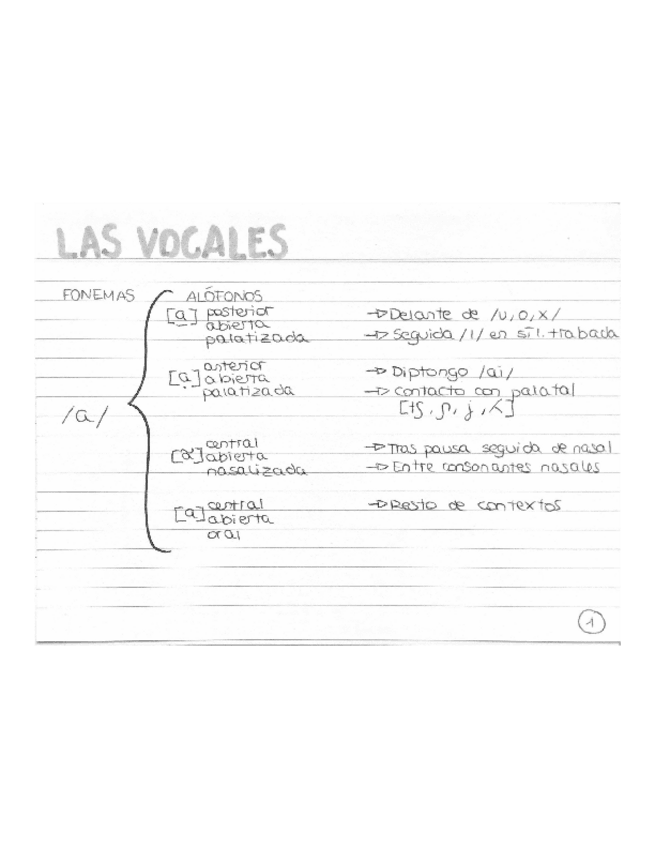 LAS VOCALES
FONEMAS ALÓFONOS
[a̠] posterior → Delante de /u, o, x/
abierta
palatizada → Seguida /l/ en síl. trabada
anterior → Diptongo /ai/
[a̟] abierta
palatizada → contacto con palatal
[tʃ, ɲ, j, ʎ]
/a/
central → Tras pausa seguida de nasal
[ã] abierta
nasalizada → Entre consonantes nasales
central → Resto de contextos
[a] abierta
oral
1